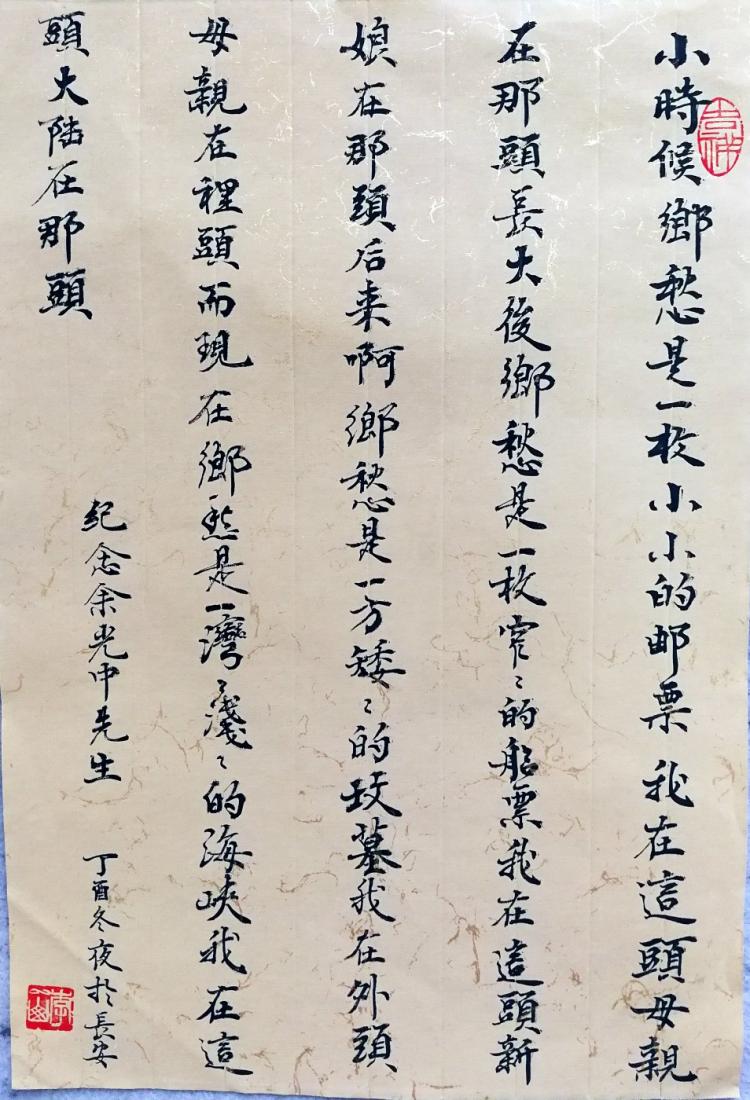 小時候鄉愁是一枚小小的邮票我在這頭母親
在那頭長大後鄉愁是一枚窄〻的船票我在這頭新
娘在那頭后来啊鄉愁是一方矮〻的坟墓我在外頭
母親在裡頭而現在鄉愁是一灣〻淺〻的海峽我在這
頭大陆在那頭
紀念余光中先生
丁酉冬夜於長安